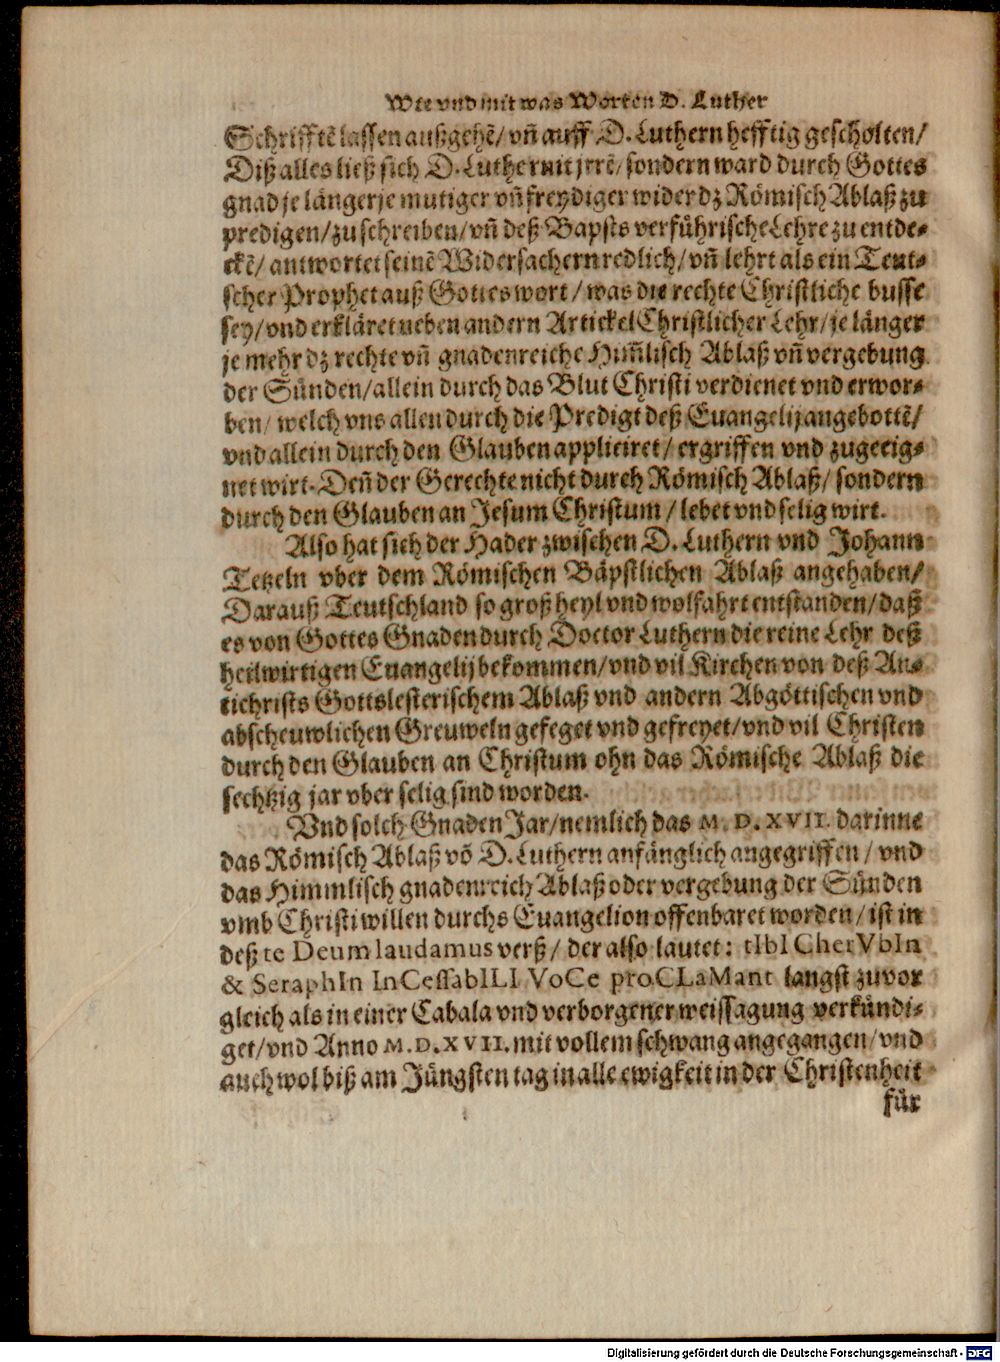 Wie vnd mit was Worten D. Luther
Schrifftē lassen außgehē/ vñ auff D. Luthern hefftig gescholten/
Diß alles ließ sich D. Luther nit jrrē/ sondern ward durch Gottes
gnad je länger je mutiger vñ freydiger wider dz Römisch Ablaß zu
predigen/ zu schreiben/ vñ deß Bapsts verführische Lehre zu entde-
ckē/ antwortet seinē Widersachern redlich/ vñ lehrt als ein Teut-
scher Prophet auß Gottes wort/ was die rechte Christliche busse
sey/ vnd erkläret neben andern Artickel Christlicher Lehr/ je länger
je mehr dz rechte vñ gnadenreiche Him̃lisch Ablaß vñ vergebung
der Sünden/ allein durch das Blut Christi verdienet vnd erwor-
ben/ welch vns allen durch die Predigt deß Euangelij angebottē/
vnd allein durch den Glauben appliciret/ ergriffen vnd zugeeig-
net wirt. Deñ der Gerechte nicht durch Römisch Ablaß/ sondern
durch den Glauben an Jesum Christum/ lebet vnd selig wirt.
Also hat sich der Hader zwischen D. Luthern vnd Johann
Tetzeln vber dem Römischen Bäpstlichen Ablaß angehaben/
Darauß Teutschland so groß heyl vnd wolfahrt entstanden/ daß
es von Gottes Gnaden durch Doctor Luthern die reine Lehr deß
heilwirtigen Euangelij bekommen/ vnd vil Kirchen von deß An-
tichrists Gottslesterischem Ablaß vnd andern Abgöttischen vnd
abscheuwlichen Greuweln gefeget vnd gefreyet/ vnd vil Christen
durch den Glauben an Christum ohn das Römische Ablaß die
sechtzig jar vber selig sind worden.
Vnd solch Gnaden Jar/ nemlich das M. D. XVII. darinne
das Römisch Ablaß vō D. Luthern anfänglich angegriffen/ vnd
das Himmlisch gnadenreich Ablaß oder vergebung der Sünden
vmb Christi willen durchs Euangelion offenbaret worden/ ist in
deß te Deum laudamus verß/ der also lautet: tIbI CherVbIn
& SeraphIn InCessabILI VoCe proCLaMant langst zuvor
gleich als in einer Cabala vnd verborgener weissagung verkündi-
get/ vnd Anno M. D. XVII. mit vollem schwang angegangen/ vnd
auch wol biß am Jüngsten tag in alle ewigkeit in der Christenheit
für
Digitalisierung gefördert durch die Deutsche Forschungsgemeinschaft - DFG